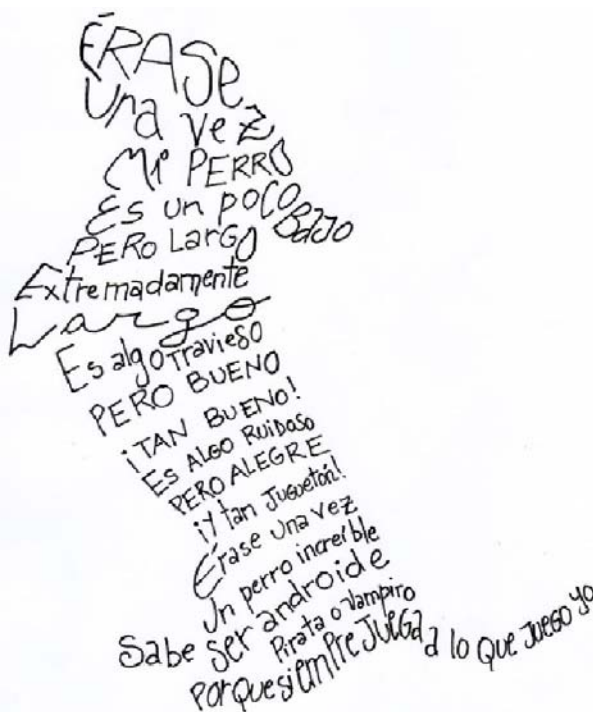 ÉRASE
Una vez
Mi PERRO
Es un poco BaJo
PERO LARGO
Extremadamente
Largo
Es algo travieso
PERO BUENO
¡TAN BUENO!
Es ALGO RUIDOSO
PERO ALEGRE
¡Y tan Juguetón!
Érase una vez
Un perro increíble
Sabe ser androide
Pirata o Vampiro
Porque siEmPre JUEGa a lo que JUEGO yo